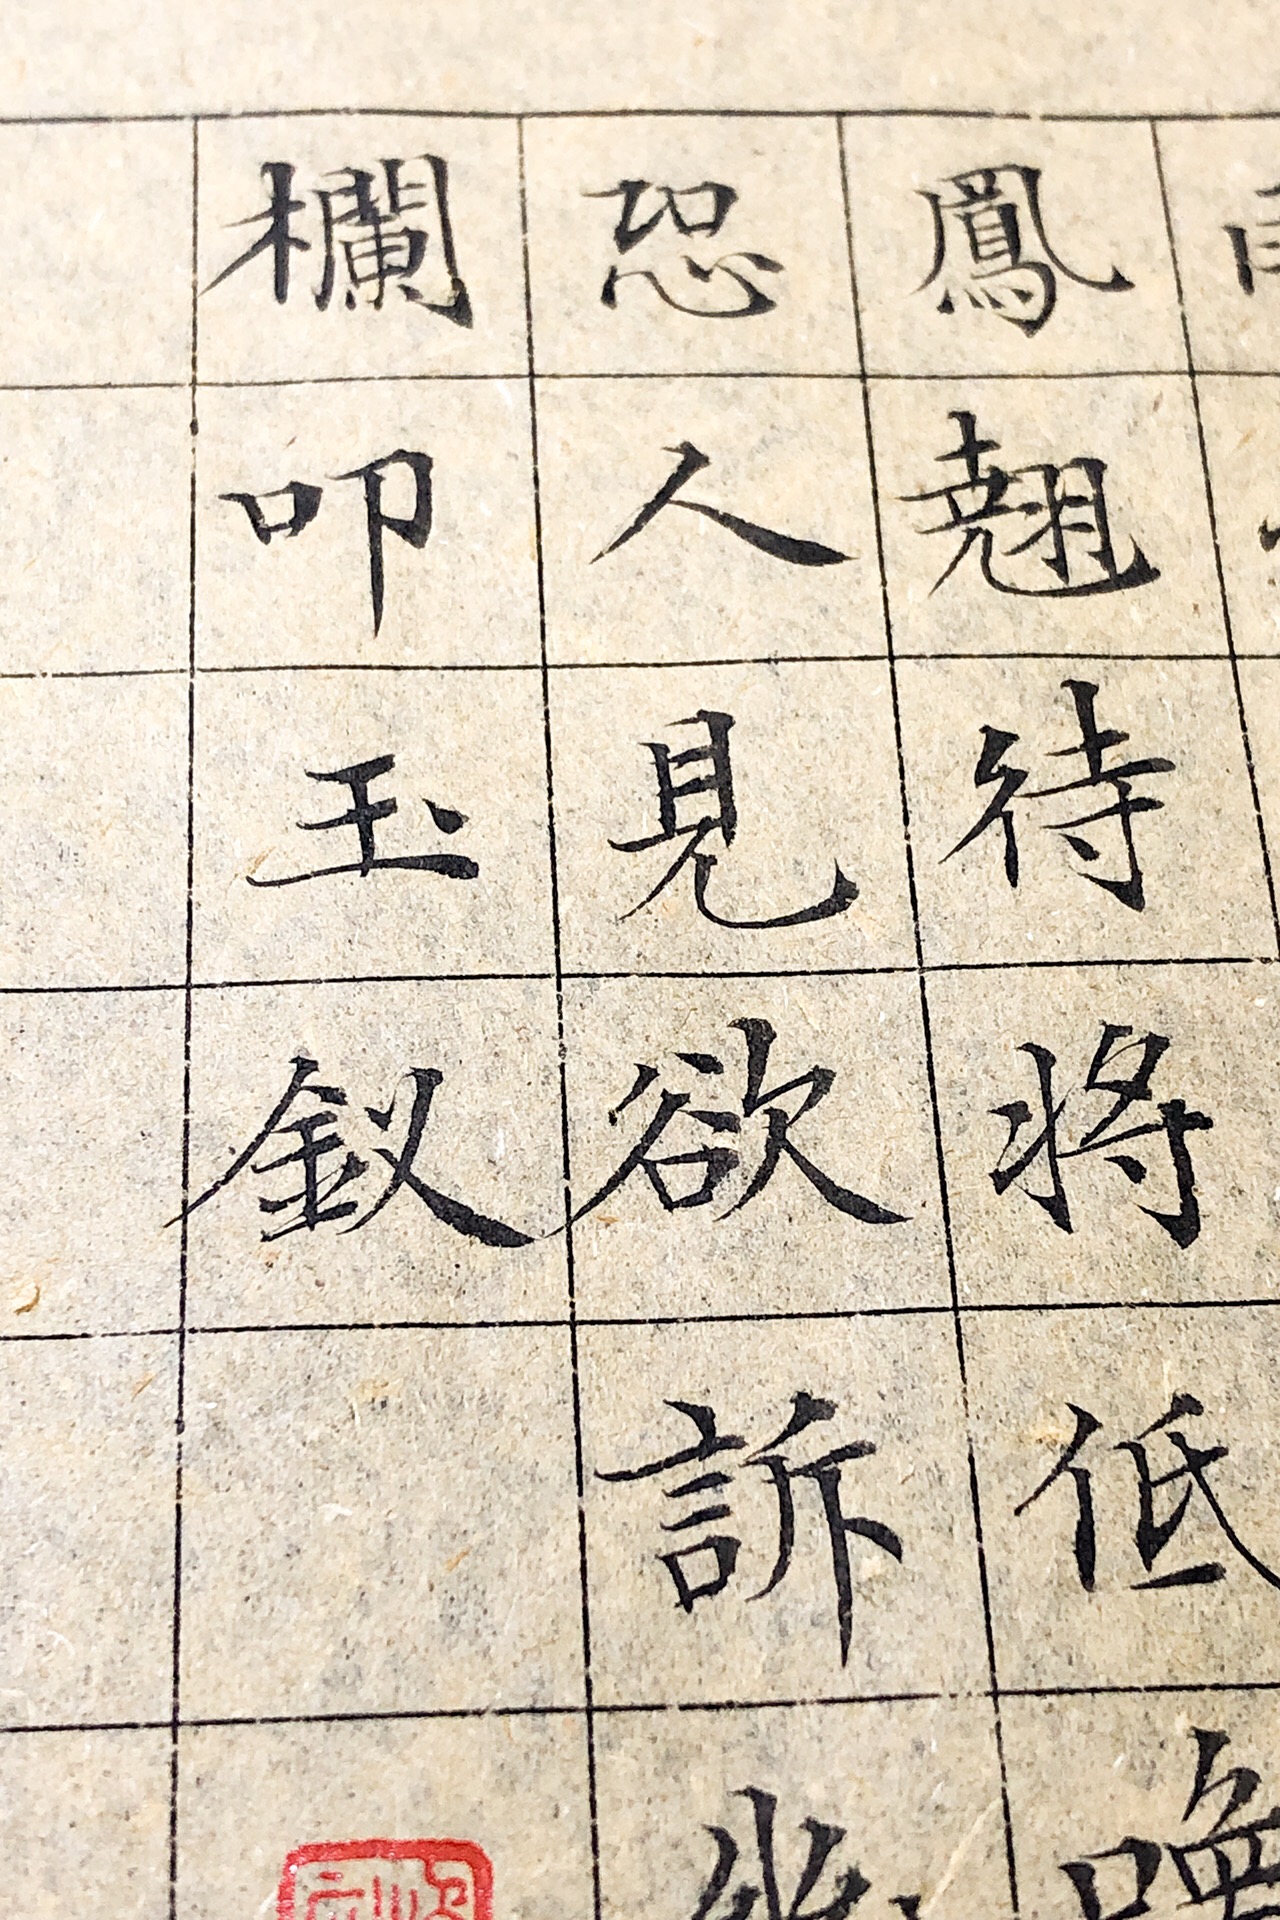 鳳翹待將低喚
恐人見欲訴
欄叩玉釵